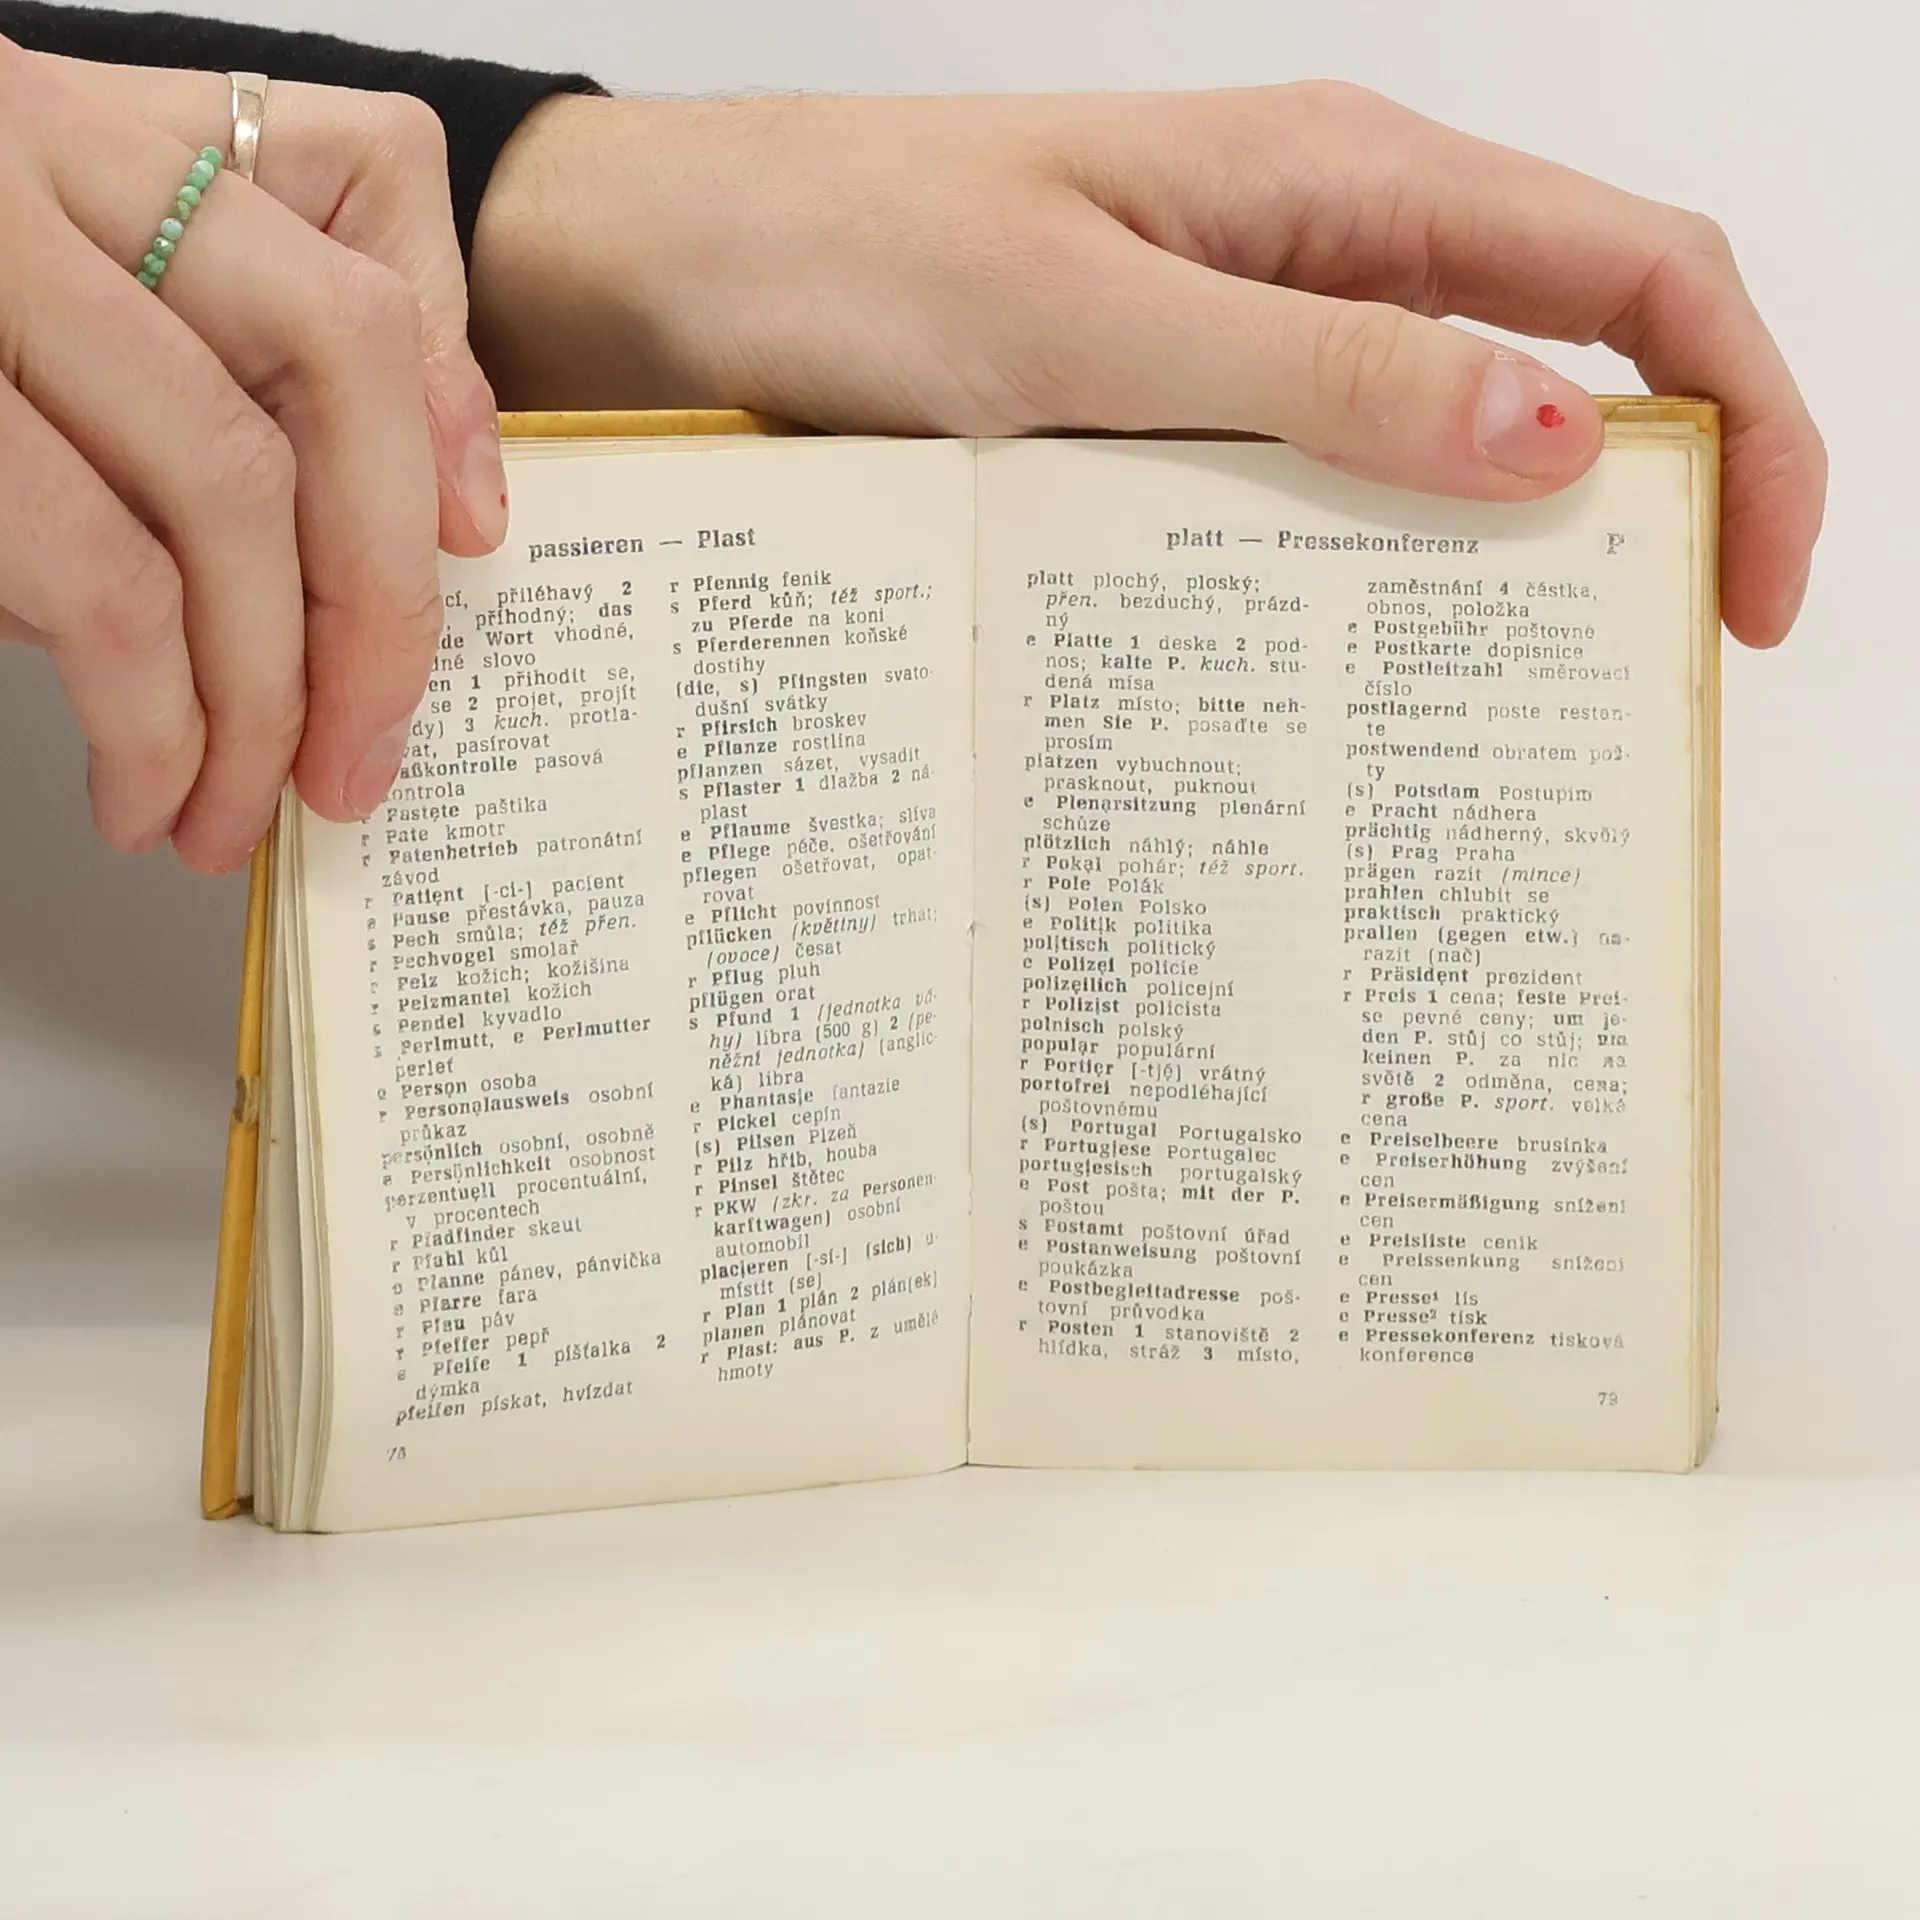 passieren — Plast
cí, přiléhavý 2
, příhodný; das
de Wort vhodné,
né slovo
en 1 přihodit se,
se 2 projet, projít
dy) 3 kuch. protla-
vat, pasírovat
aßkontrolle pasová
kontrola
Pastete paštika
r Pate kmotr
r Patenbetrieb patronátní
závod
r Patient [-ci-] pacient
e Pause přestávka, pauza
s Pech smůla; též přen.
r Pechvogel smolař
r Pelz kožich; kožišina
r Pelzmantel kožich
s Pendel kyvadlo
s Perlmutt, e Perlmutter
perleť
e Person osoba
r Personalausweis osobní
průkaz
persönlich osobní, osobně
e Persönlichkeit osobnost
perzentuell procentuální,
v procentech
r Pfadfinder skaut
r Pfahl kůl
e Pfanne pánev, pánvička
e Pfarre fara
r Pfau páv
r Pfeffer pepř
e Pfeife 1 píšťalka 2
dýmka
pfeifen pískat, hvízdat
78
r Pfennig fenik
s Pferd kůň; též sport.;
zu Pferde na koni
s Pferderennen koňské
dostihy
(die, s) Pfingsten svato-
dušní svátky
r Pfirsich broskev
e Pflanze rostlina
pflanzen sázet, vysadit
s Pflaster 1 dlažba 2 ná-
plast
e Pflaume švestka; slíva
e Pflege péče, ošetřování
pflegen ošetřovat, opat-
rovat
e Pflicht povinnost
pflücken (květiny) trhat;
(ovoce) česat
r Pflug pluh
pflügen orat
s Pfund 1 (jednotka vá-
hy) libra (500 g) 2 (pe-
něžní jednotka) (anglic-
ká) libra
e Phantasie fantazie
r Pickel cepín
(s) Pilsen Plzeň
r Pilz hřib, houba
r Pinsel štětec
r PKW (zkr. za Personen-
karftwagen) osobní
automobil
placieren [-sí-] (sich) u-
místit (se)
r Plan 1 plán 2 plán(ek)
planen plánovat
r Plast: aus P. z umělé
hmoty
platt — Pressekonferenz P
platt plochý, ploský;
přen. bezduchý, prázd-
ný
e Platte 1 deska 2 pod-
nos; kalte P. kuch. stu-
dená mísa
r Platz místo; bitte neh-
men Sie P. posaďte se
prosím
platzen vybuchnout;
prasknout, puknout
e Plenarsitzung plenární
schůze
plötzlich náhlý; náhle
r Pokal pohár; též sport.
r Pole Polák
(s) Polen Polsko
e Politik politika
politisch politický
e Polizei policie
polizeilich policejní
r Polizist policista
polnisch polský
popular populární
r Portier [-tjé] vrátný
portofrei nepodléhající
poštovnému
(s) Portugal Portugalsko
r Portugiese Portugalec
portugiesisch portugalský
e Post pošta; mit der P.
poštou
s Postamt poštovní úřad
e Postanweisung poštovní
poukázka
e Postbegleitadresse poš-
tovní průvodka
r Posten 1 stanoviště 2
hlídka, stráž 3 místo,
zaměstnání 4 částka,
obnos, položka
e Postgebühr poštovné
e Postkarte dopisnice
e Postleitzahl směrovací
číslo
postlagernd poste restan-
te
postwendend obratem poš-
ty
(s) Potsdam Postupim
e Pracht nádhera
prächtig nádherný, skvělý
(s) Prag Praha
prägen razit (mince)
prahlen chlubit se
praktisch praktický
prallen (gegen etw.) na-
razit (nač)
r Präsident prezident
r Preis 1 cena; feste Prei-
se pevné ceny; um je-
den P. stůj co stůj; um
keinen P. za nic na
světě 2 odměna, cena;
r große P. sport. velká
cena
e Preiselbeere brusinka
e Preiserhöhung zvýšení
cen
e Preisermäßigung snížení
cen
e Preisliste ceník
e Preissenkung snížení
cen
e Presse¹ lis
e Presse² tisk
e Pressekonferenz tisková
konference
79